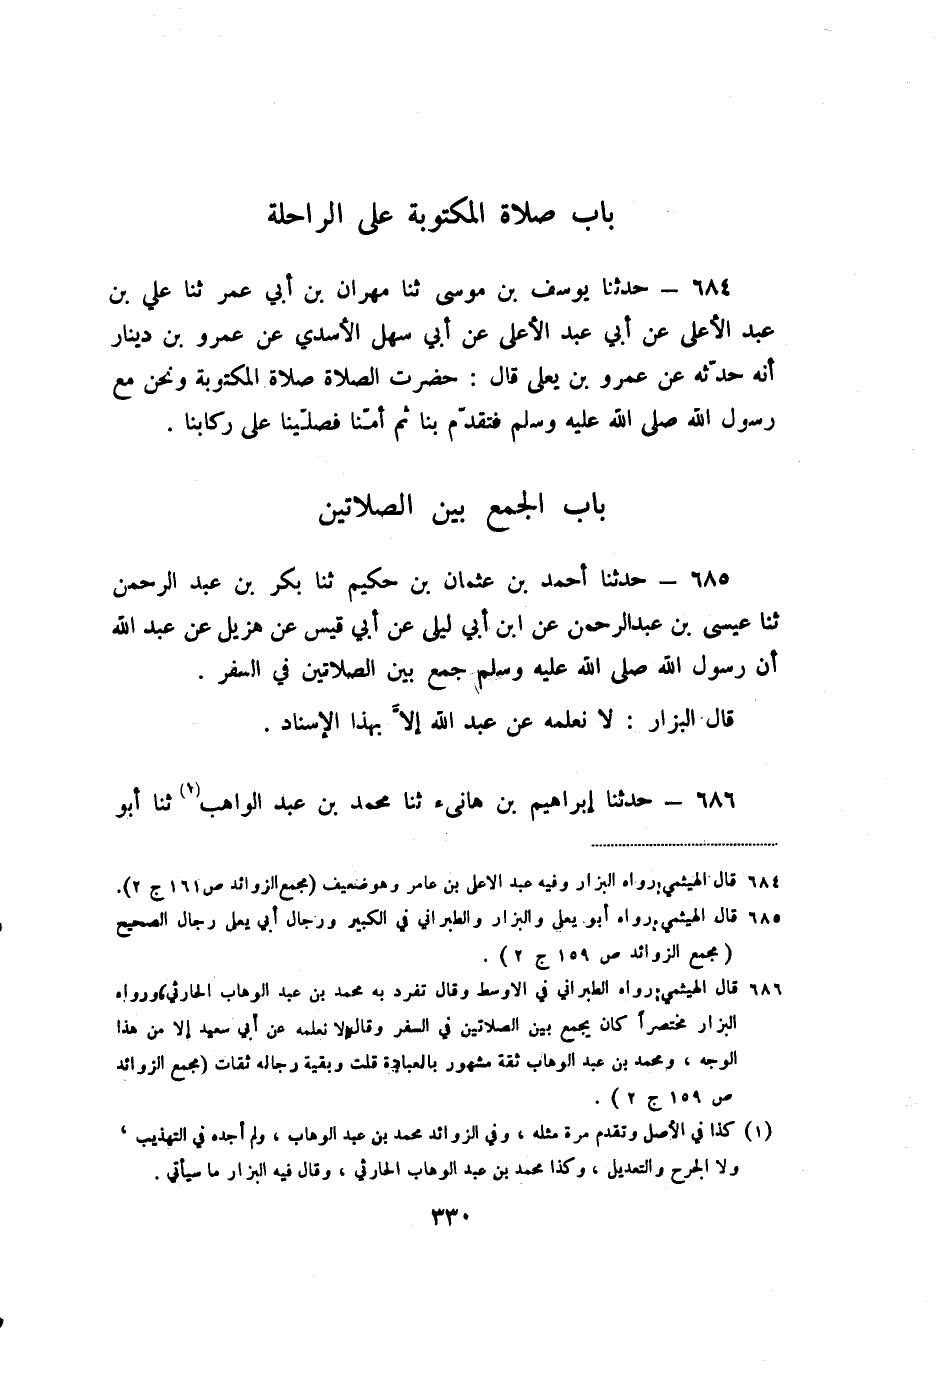 باب صلاة المكتوبة على الراحلة
٦٨٤ – حدثنا يوسف بن موسى ثنا مهران بن أبي عمر ثنا علي بن
عبد الأعلى عن أبي عبد الأعلى عن أبي سهل الأسدي عن عمرو بن دينار
أنه حدّثه عن عمرو بن يعلى قال : حضرت الصلاة صلاة المكتوبة ونحن مع
رسول الله صلى الله عليه وسلم فتقدّم بنا ثم أمّنا فصلّينا على ركابنا .
باب الجمع بين الصلاتين
٦٨٥ – حدثنا أحمد بن عثمان بن حكيم ثنا بكر بن عبد الرحمن
ثنا عيسى بن عبدالرحمن عن ابن أبي ليلى عن أبي قيس عن هزيل عن عبد الله
أن رسول الله صلى الله عليه وسلم جمع بين الصلاتين في السفر .
قال البزار : لا نعلمه عن عبد الله إلاَّ بهذا الإسناد .
٦٨٦ – حدثنا إبراهيم بن هانىء ثنا محمد بن عبد الواهب(١) ثنا أبو
٦٨٤ قال الهيثمي: رواه البزار وفيه عبد الاعلى بن عامر وهو ضعيف (مجمع الزوائد ص ١٦١ ج ٢).
٦٨٥ قال الهيثمي: رواه أبو يعلى والبزار والطبراني في الكبير ورجال أبي يعلى رجال الصحيح
( مجمع الزوائد ص ١٥٩ ج ٢ ) .
٦٨٦ قال الهيثمي: رواه الطبراني في الاوسط وقال تفرد به محمد بن عبد الوهاب الحارثي، ورواه
البزار مختصراً كان يجمع بين الصلاتين في السفر وقال لا نعلمه عن أبي سعيد إلا من هذا
الوجه ، ومحمد بن عبد الوهاب ثقة مشهور بالعبادة قلت وبقية رجاله ثقات (مجمع الزوائد
ص ١٥٩ ج ٢ ) .
(١) كذا في الأصل وتقدم مرة مثله ، وفي الزوائد محمد بن عبد الوهاب ، ولم أجده في التهذيب ،
ولا الجرح والتعديل ، وكذا محمد بن عبد الوهاب الحارثي ، وقال فيه البزار ما سيأتي .
٣٣٠